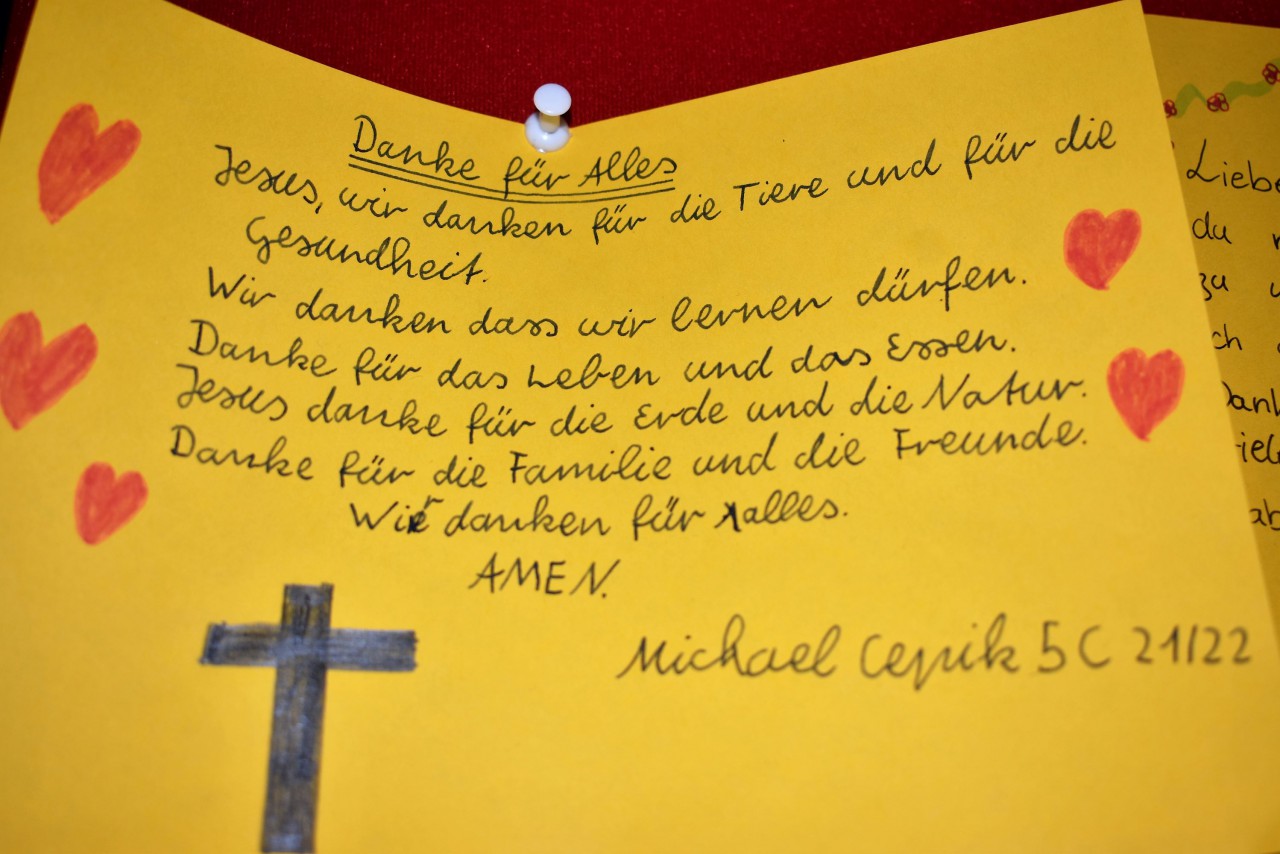 Danke für Alles
Jesus, wir danken für die Tiere und für die
Gesundheit.
Wir danken dass wir lernen dürfen.
Danke für das Leben und das Essen.
Jesus danke für die Erde und die Natur.
Danke für die Familie und die Freunde.
Wir danken für alles.
AMEN.
Michael Cepik 5C 21/22
Liebe
du
zu